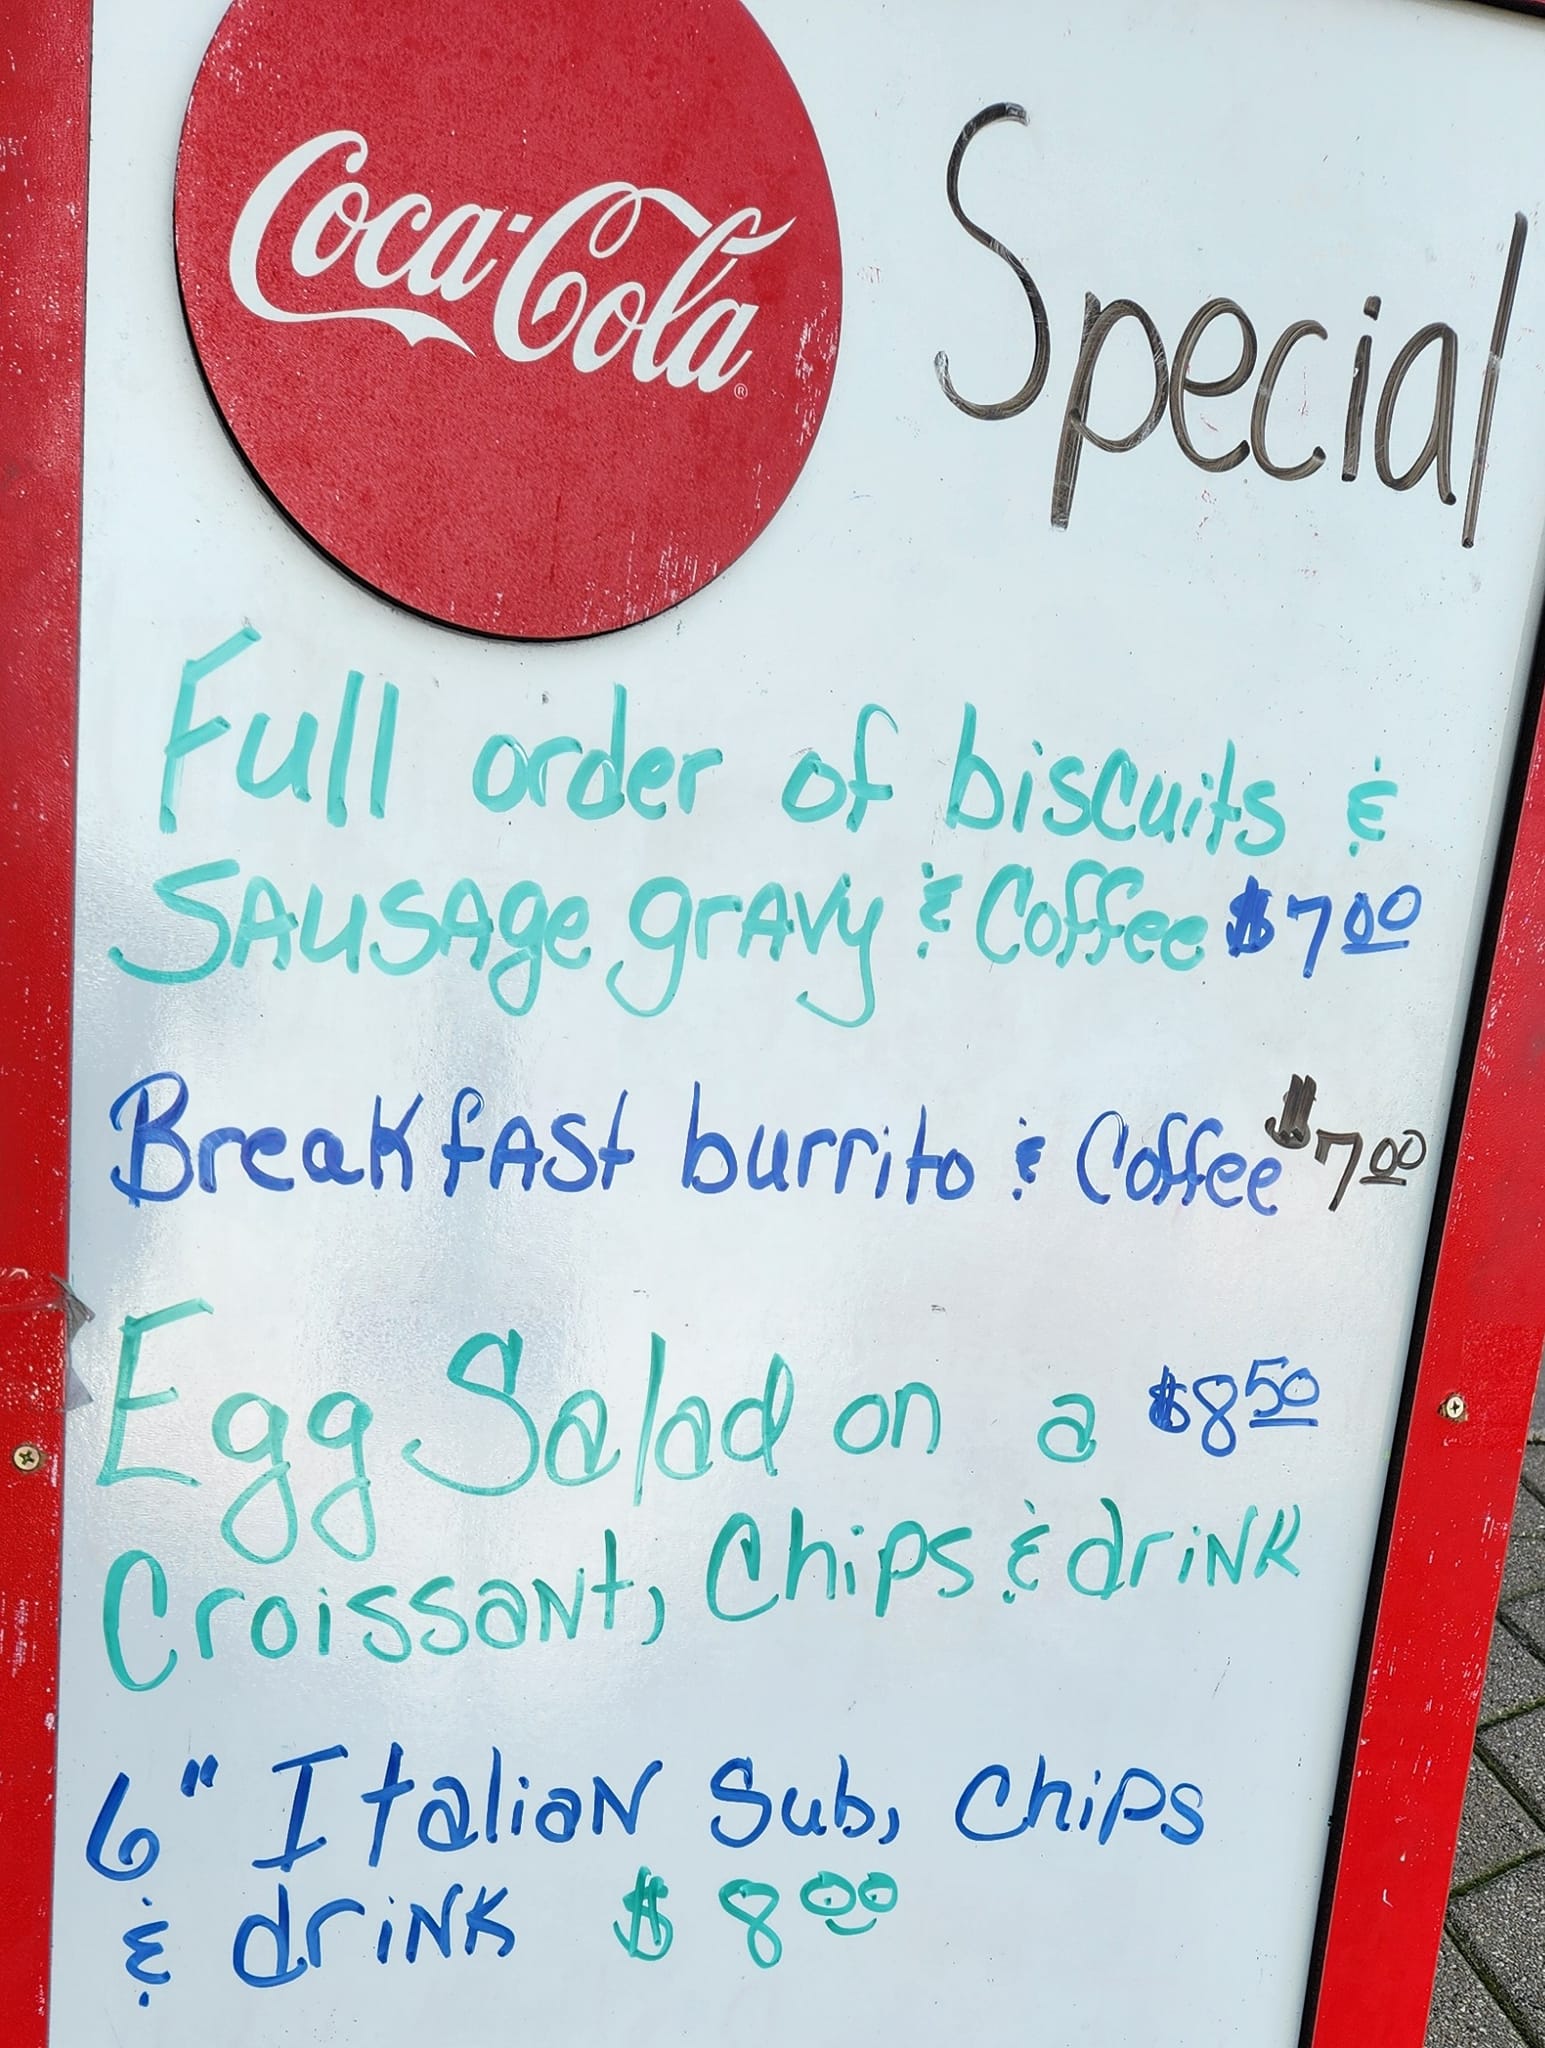 Coca-Cola®
Special
Full order of biscuits &
Sausage gravy & Coffee $7.00
Breakfast burrito & Coffee $7.00
Egg Salad on a $8.50
Croissant, Chips & drink
6" Italian Sub, Chips
& drink $8.00